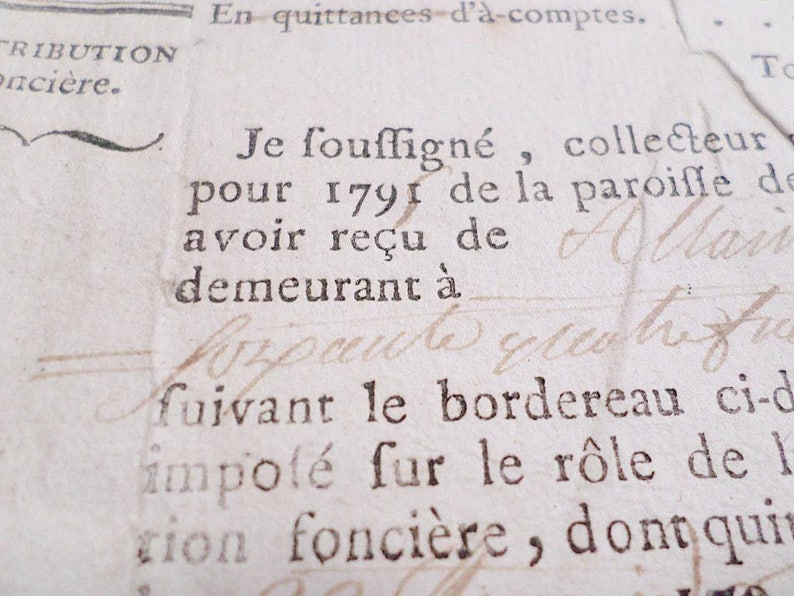 En quittances d'à-comptes.
TRIBUTION
oncière.
To
Je ſouſſigné, collecteur
pour 1791 de la paroiſſe de
avoir reçu de Allain
demeurant à
Soixante quatre
ſuivant le bordereau ci-d
impoſé ſur le rôle de l
tion foncière, dont quit